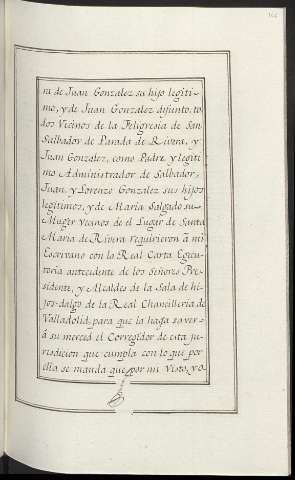 ra de Juan Gonzalez su hijo legiti-
mo, y de Juan Gonzalez difunto, to
dos Vicinos de la Feligresia de San
Salbador de Parada de Rivera, y
Juan Gonzalez, como Padre, y legiti
mo Administrador de Salbador,
Juan, y Lorenzo Gonzalez sus hijos
legitimos, y de Maria Salgado su
Muger vecinos de el Lugar de Santa
Maria de Rivera requirieron à mi
Escrivano con la Real Carta Egecu-
toria antecedente de los Señores Pre-
sidente, y Alcaldes de la Sala de hi-
jos-dalgo de la Real Chancilleria de
Valladolid, para que la haga saver
à su merced el Corregidor de esta ju-
risdicion que cumpla con lo que por
ella se manda que por mi Visto, y o-